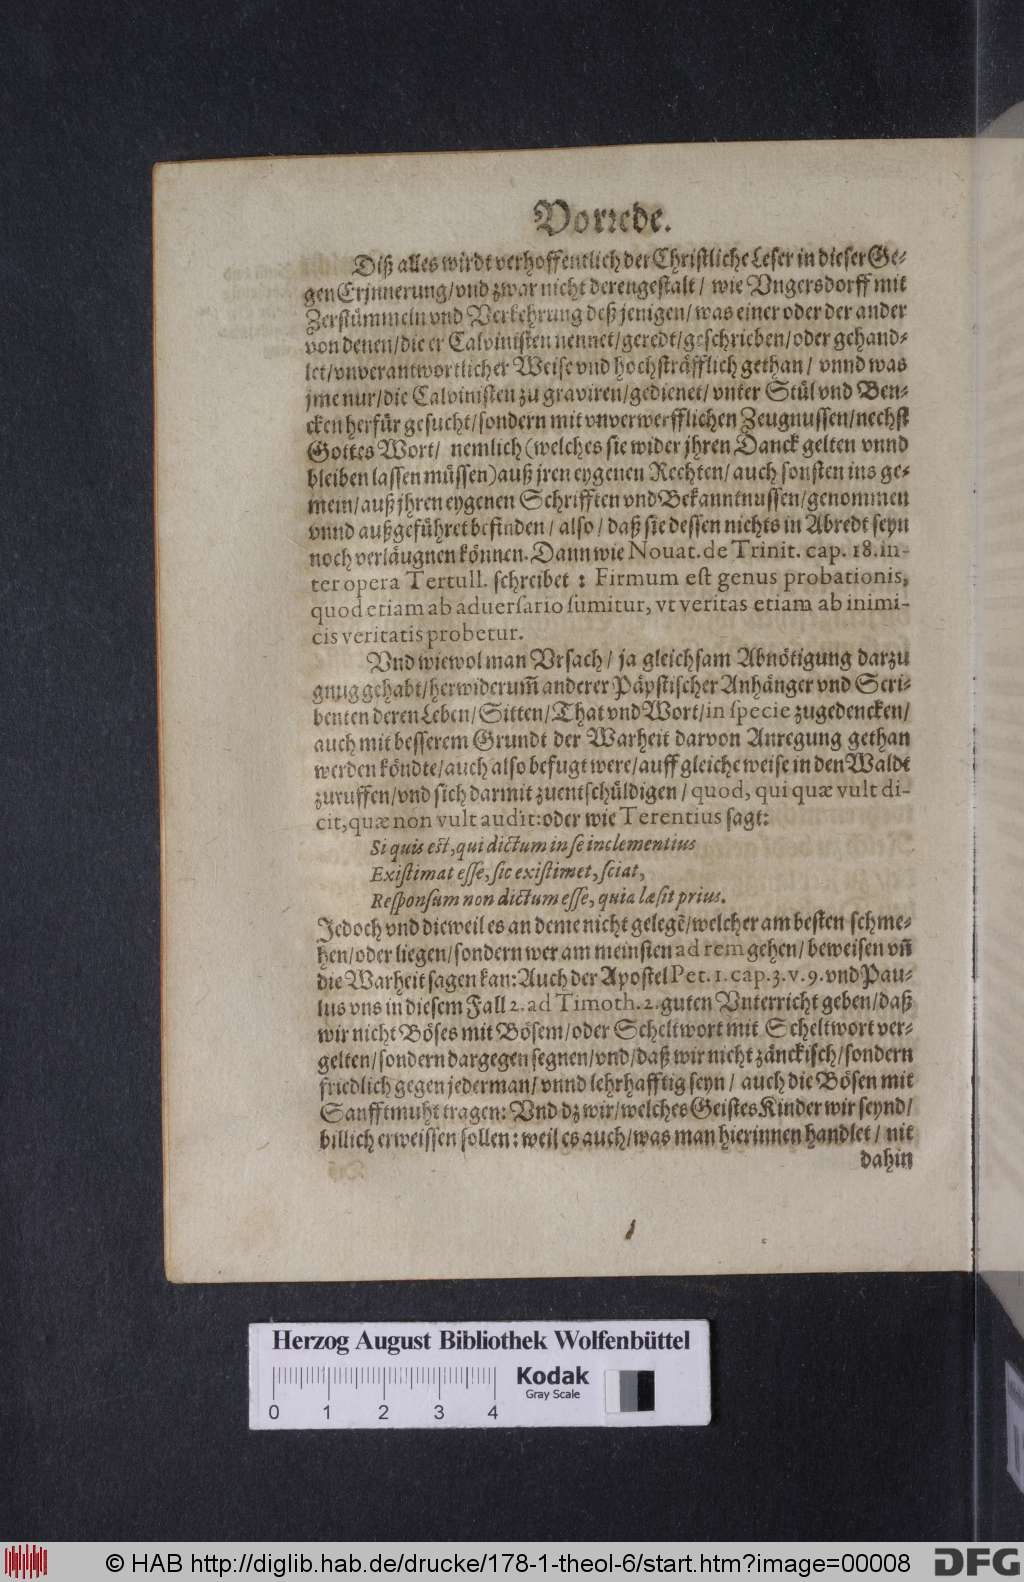 Vorrede.
Diß alles wirdt verhoffentlich der Christliche Leser in dieser Ge-
gen Erjnnerung/vnd zwar nicht derengestalt/ wie Vngersdorff mit
Zerstümmeln vnd Verkehrung deß jenigen/was einer oder der ander
von denen/die er Calvinisten nennet/geredt/geschrieben/oder gehand-
let/vnverantwortlicher Weise vnd hochsträfflich gethan/ vnnd was
jme nur/die Calvinisten zu graviren/gedienet/vnter Stül vnd Ben-
cken herfür gesucht/sondern mit vnverwerfflichen Zeugnussen/nechst
Gottes Wort/ nemlich (welches sie wider jhren Danck gelten vnnd
bleiben lassen müssen) auß jren eygenen Rechten/auch sonsten ins ge-
mein/auß jhren eygenen Schrifften vnd Bekanntnussen/genommen
vnnd außgeführet befinden/ also/ daß sie dessen nichts in Abredt seyn
noch verläugnen können. Dann wie Nouat. de Trinit. cap. 18. in-
ter opera Tertull. schreibet : Firmum est genus probationis,
quod etiam ab aduersario sumitur, vt veritas etiam ab inimi-
cis veritatis probetur.
Vnd wiewol man Vrsach/ ja gleichsam Abnötigung darzu
gnug gehabt/herwiderum̃ anderer Päpstischer Anhänger vnd Scri-
benten deren Leben/Sitten/That vnd Wort/in specie zugedencken/
auch mit besserem Grundt der Warheit darvon Anregung gethan
werden köndte/auch also befugt were/auff gleiche weise in den Waldt
zuruffen/vnd sich darmit zuentschüldigen/quod, qui quæ vult di-
cit, quæ non vult audit: oder wie Terentius sagt:
Si quis est, qui dictum in se inclementius
Existimat esse, sic existimet, sciat,
Responsum non dictum esse, quia læsit prius.
Jedoch vnd dieweil es an deme nicht gelegẽ/welcher am besten schme-
hen/oder liegen/sondern wer am meinsten ad rem gehen/ beweisen vñ
die Warheit sagen kan: Auch der Apostel Pet. 1. cap. 3. v. 9. vnd Pau-
lus vns in diesem Fall 2. ad Timoth. 2. guten Vnterricht geben/daß
wir nicht Böses mit Bösem/oder Scheltwort mit Scheltwort ver-
gelten/sondern dargegen segnen/vnd/daß wir nicht zänckisch/sondern
friedlich gegen jederman/vnnd lehrhafftig seyn/ auch die Bösen mit
Sanfftmuht tragen: Vnd dz wir/welches Geistes Kinder wir seynd/
billich erweissen sollen: weil es auch/was man hierinnen handlet/ nit
dahin
Herzog August Bibliothek Wolfenbüttel
Kodak
Gray Scale
0 1 2 3 4
© HAB http://diglib.hab.de/drucke/178-1-theol-6/start.htm?image=00008
DFG